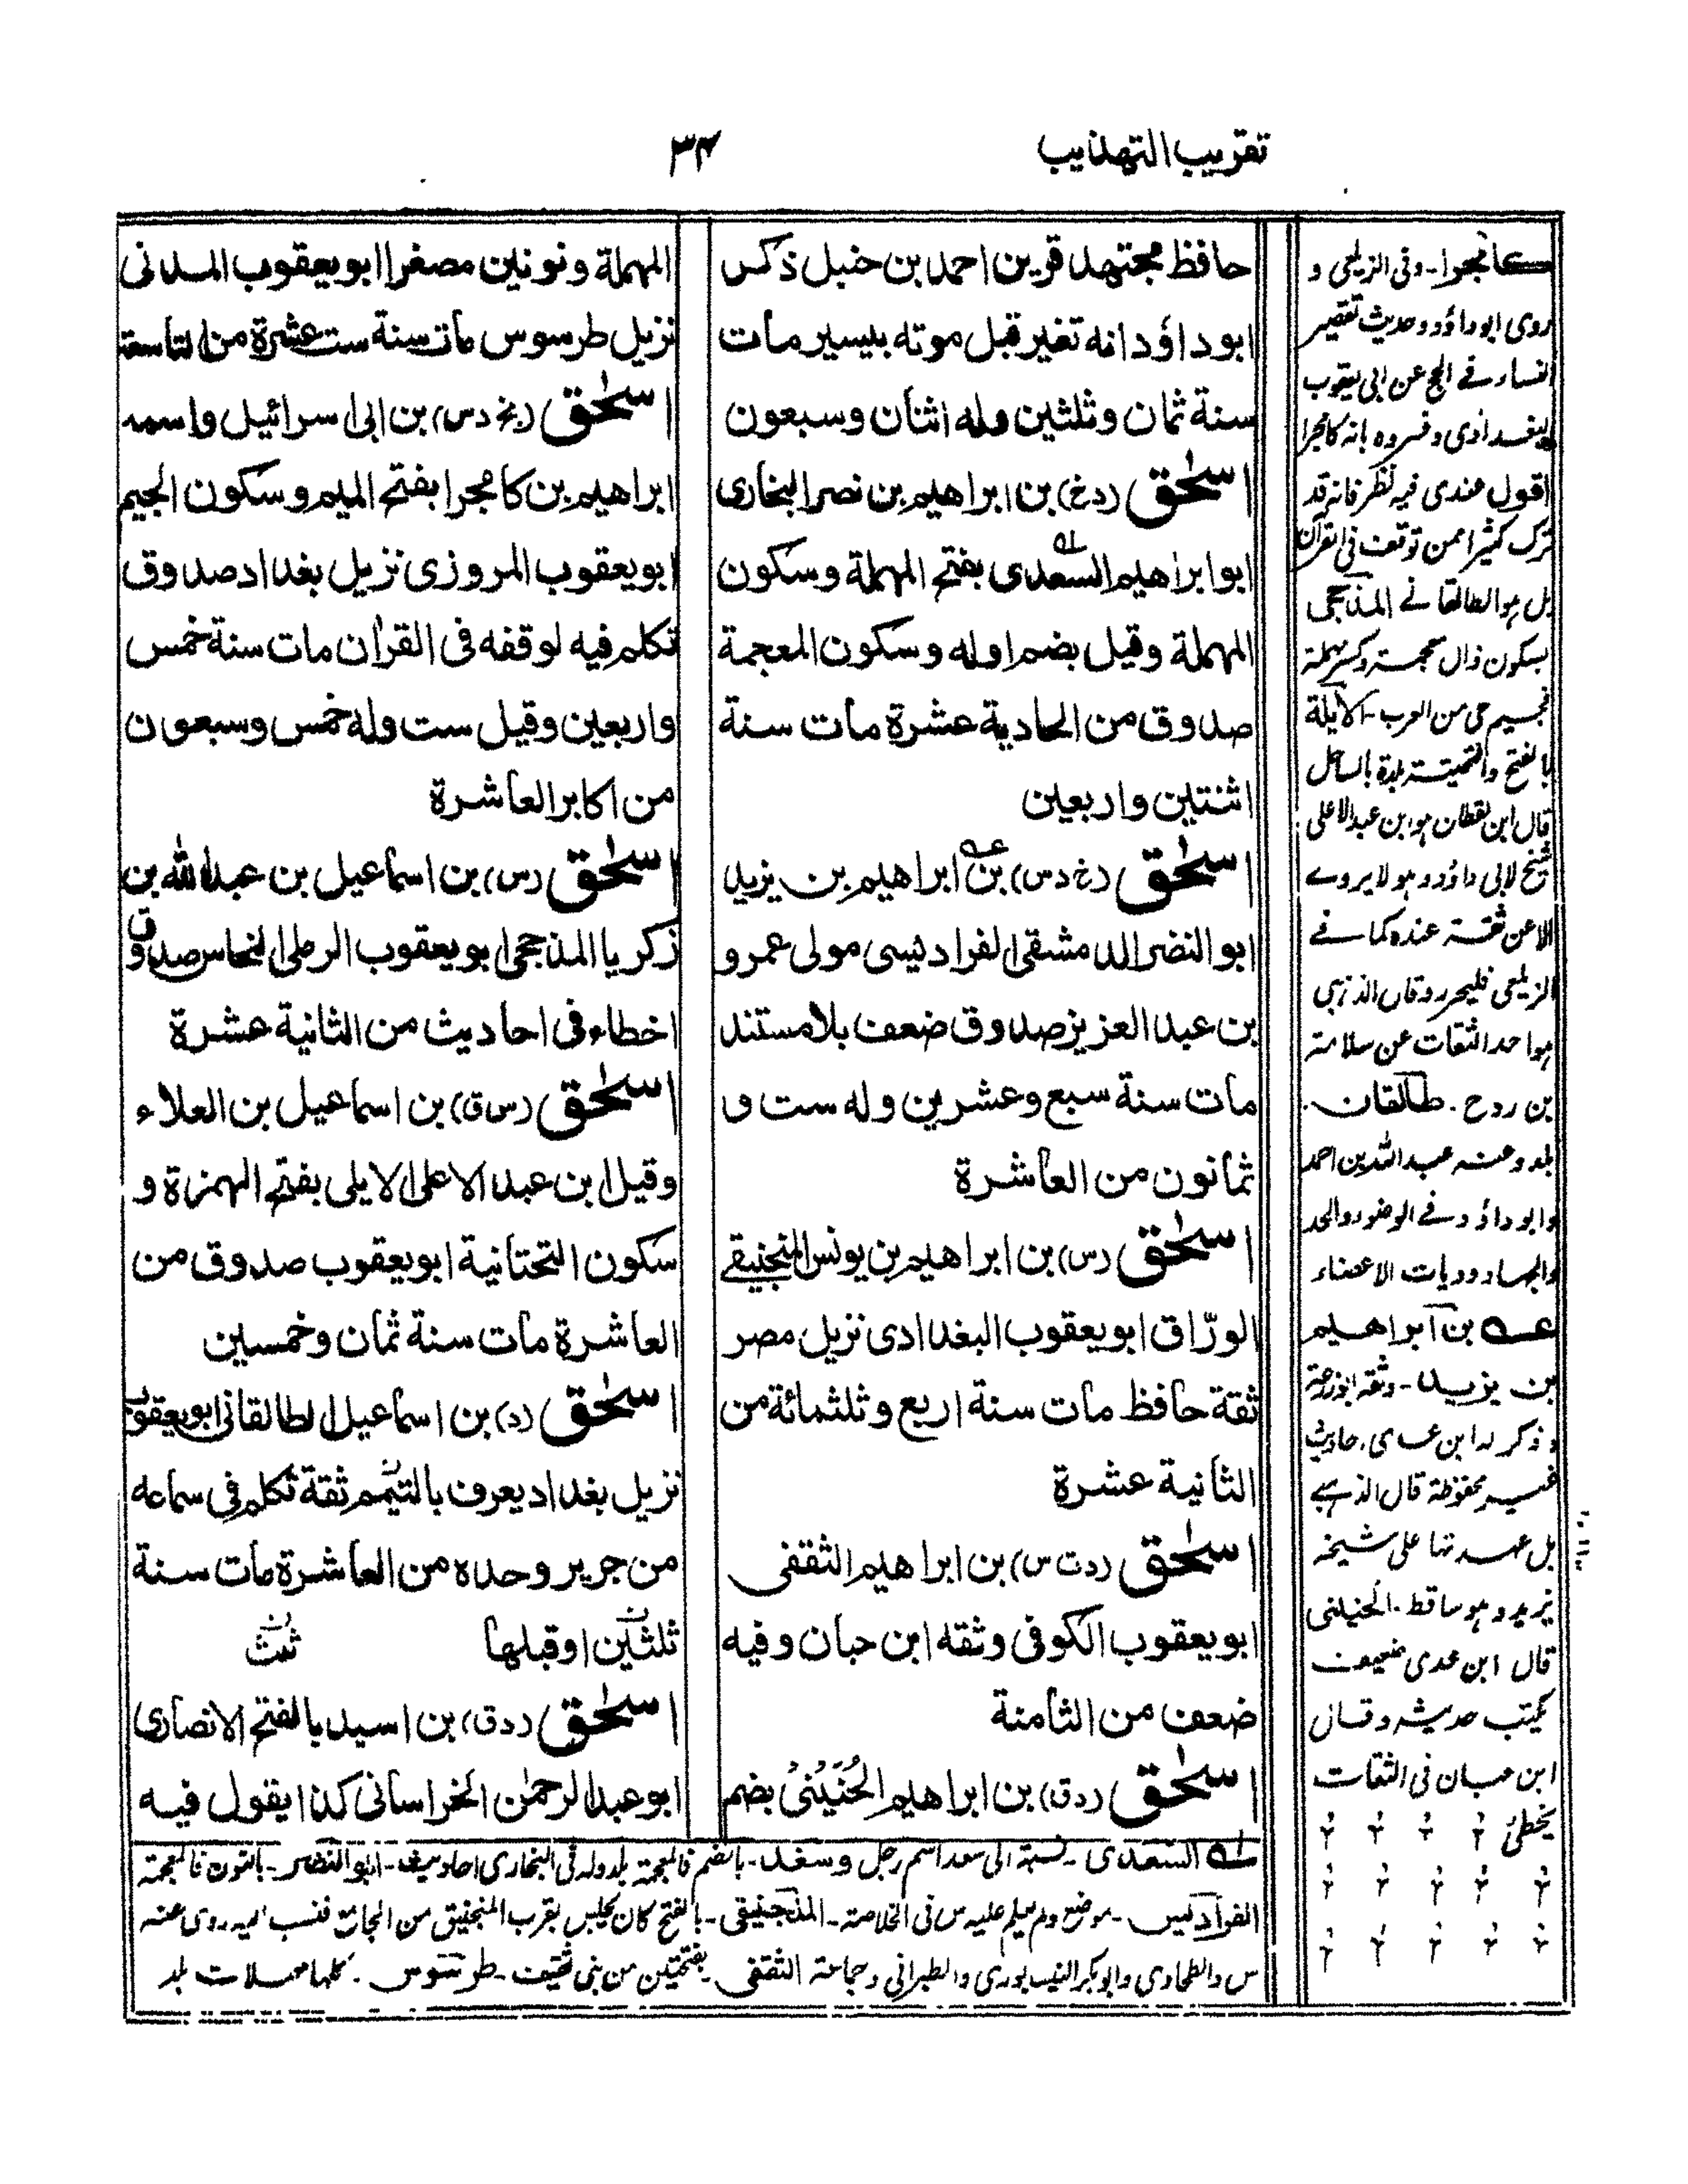 تقريب التهذيب
٣٤
حافظ مجتهد قرين احمد بن حنبل ذكر
ابو داؤد انه تغير قبل موته بيسير مات
سنة ثمان وثلثين وله اثنان وسبعون
اسحٰق (د خ) بن ابراهيم بن نصر البخارى
ابو ابراهيم السعدى بفتح المهملة وسكون
المهملة وقيل بضم اوله وسكون المعجمة
صدوق من الحادية عشرة مات سنة
اثنتين واربعين
اسحٰق (خ د س) بن ابراهيم بن يزيد
ابو النضر الدمشقى الفراديسى مولى عمرو
بن عبد العزيز صدوق ضعف بلا مستند
مات سنة سبع وعشرين وله ست و
ثمانون من العاشرة
اسحٰق (س) بن ابراهيم بن يونس المنجنيقے
الورّاق ابو يعقوب البغدادى نزيل مصر
ثقة حافظ مات سنة اربع وثلثمائة من
الثانية عشرة
اسحٰق (د ت س) بن ابراهيم الثقفى
ابو يعقوب الكوفى وثقه ابن حبان وفيه
ضعف من الثامنة
اسحٰق (د ق) بن ابراهيم الحُنَيْنىُ بضم
المهملة ونونين مصغرا ابو يعقوب المدنى
نزيل طرسوس مات سنة ست عشرة من التاسعة
اسحٰق (بخ د س) بن ابى اسرائيل واسمه
ابراهيم بن كامجرا بفتح الميم وسكون الجيم
ابو يعقوب المروزى نزيل بغداد صدوق
تكلم فيه لوقفه فى القرأن مات سنة خمس
واربعين وقيل ست وله خمس وسبعون
من اكابر العاشرة
اسحٰق (س) بن اسماعيل بن عبدالله بن
زكريا المذحجى ابو يعقوب الرملى النحاس صدوق
اخطاء فى احاديث من الثانية عشرة
اسحٰق (س ق) بن اسماعيل بن العلاء
وقيل ابن عبد الاعلى الايلى بفتح الهمزة و
سكون التحتانية ابو يعقوب صدوق من
العاشرة مات سنة ثمان وخمسين
اسحٰق (د) بن اسماعيل الطالقانى ابو يعقوب
نزيل بغداد يعرف باليتيم ثقة تكلم فى سماعه
من جرير وحده من العاشرة مات سنة
ثلثين او قبلها
اسحٰق (د ق) بن اسيد بالفتح الانصارى
ابو عبد الرحمٰن الخراسانى كذا يقول فيه
كامجرا - وفى الزيلعى و
روى ابو داؤد وحديث تقصير
النساء فے الحج عن ابى يعقوب
البغدادى وفسروه بانه كامجرا
اقول عندى فيه نظر فانه قد
ترك كثيرا ممن توقف فى القرآن
بل هو الطالقانے المذحجى
بسكون ذال معجمة وكسر مهملة
فجيم حى من العرب - الايلة
بالفتح والتحتية بلدة بالساحل
قال ابن القطان هو ابن عبد الاعلى
شيخ لابى داؤد وهو لا يروے
الا عن ثقة عنده كما فے
الزيلعى فليحرر وقال الذهبى
هو احد الثقات عن سلامة
بن روح . طالقان .
بلد وعنه عبد الله بن احمد
وابو داؤد فے الوضوء والحد
والجهاد وديات الاعضاء
عــه بن ابراهيم
بن يزيد - وثقه ابو زرعة
وذكر له ابن عدى احاديث
غير محفوظة قال الذهبے
بل عهدتها على شيخه
يزيد وهو ساقط - الحنينى
قال ابن عدى ضعيف
يكتب حديثه وقال
ابن حبان فى الثقات
يخطئ
له السعدى - نسبة الى سعد اسم رجل وسغد - بالضم فالمعجمة بلد وله فى البخارى احاديث - ابو النضر - بالنون فالمعجمة
الفراديس - موضع ولم يعلم عليه س فى الخلاصة - المنجنيقى - بالفتح كان يجلس بقرب المنجنيق من الجامع فنسب اليه روى عنه
س والطحاوى وابو بكر النيسابورى والطبرانى وجماعة الثقفى - بفتحتين من بنى ثقيف - طرسوس . كلها مهملات بلد